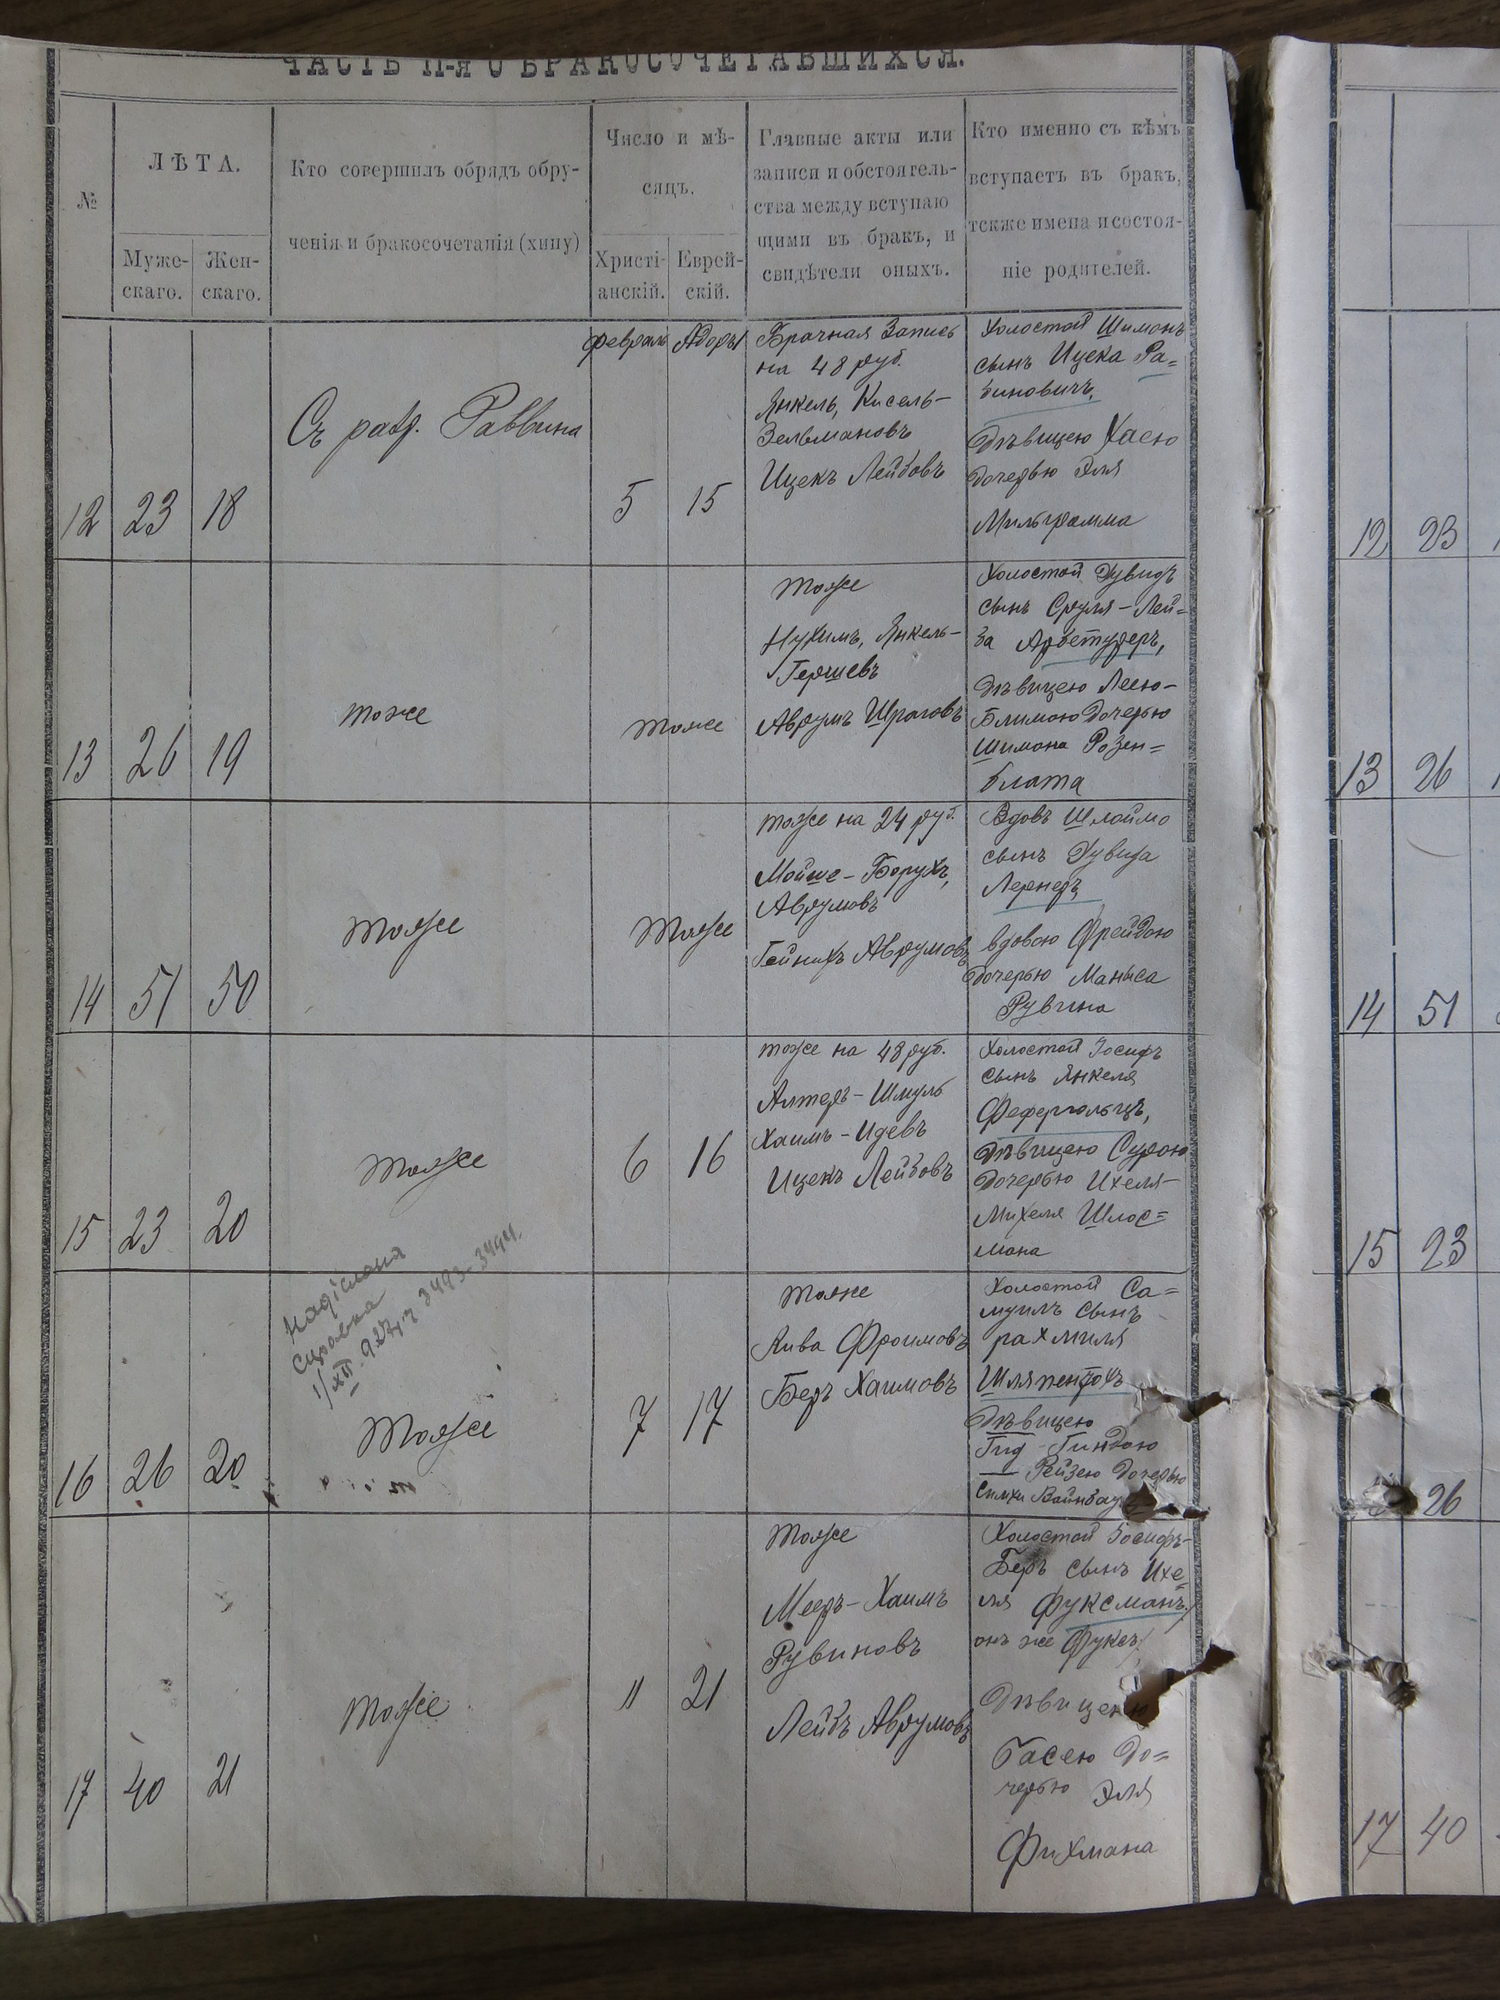 ЧАСТЬ II-я О БРАКОСОЧЕТАВШИХСЯ.
№
ЛѢТА.
Муже-
скаго.
Жен-
скаго.
Кто совершилъ обрядъ обру-
ченія и бракосочетанія (хипу)
Число и мѣ-
сяцъ.
Христі-
анскій.
Еврей-
скій.
Главные акты или
записи и обстоятель-
ства между вступаю
щими въ бракъ, и
свидѣтели оныхъ.
Кто именно съ кѣмъ
вступаетъ въ бракъ,
также имена и состоя-
ніе родителей.
12
23
18
Съ разр. Раввина
Февраль
5
Адоръ
15
Брачная Запись
на 48 руб.
Янкель, Кисель-
Зельмановъ
Ицекъ Лейбовъ
Холостой Шимонъ
сынъ Ицека Ра=
биновичъ,
Дѣвицею Хаею
дочерью Эля
Мильграмма
13
26
19
тоже
тоже
тоже
Нухимъ, Янкель-
Гершевъ
Аврумъ Шраговъ
Холостой Дувидъ
сынъ Сруля-Лей=
ба Арбетуреръ,
Дѣвицею Леею-
Блимою Дочерью
Шимона Розен=
блата
14
51
50
тоже
тоже
тоже на 24 руб.
Мойше-Борухъ,
Аврумовъ
Гейнихъ Аврумовъ
Вдовъ Шлоймо
сынъ Дувида
Лернеръ
вдовою Фрейдою
дочерью Маныса
Рувина
15
23
20
тоже
6
16
тоже на 48 руб.
Алтеръ-Шмуль
Хаимъ-Идевъ
Ицекъ Лейбовъ
Холостой Іосифъ
сынъ Янкеля
Фефергольцъ,
Дѣвицею Сурою
Дочерью Ихеля-
Михеля Шлос=
мана
Надіслана
справка
1/XII-927 г 3493-3494.
16
26
20
тоже
7
17
тоже
Акива Фроимовъ
Беръ Хаимовъ
Холостой Са=
муилъ сынъ
рахмиля
Шляпентохъ
Дѣвицею
Гид-Гиндою
Рейзею дочерью
Симхи
17
40
21
тоже
11
21
тоже
Мееръ-Хаимъ
Рувиновъ
Лейбъ Аврумовъ
Холостой Іосифъ-
Беръ сынъ Ихе=
ля Фуксманъ/
онъ же Фуксъ/
Дѣвицею
Басею До=
черью Эля
Фихмана
12
23
13
26
14
51
15
23
26
17
40